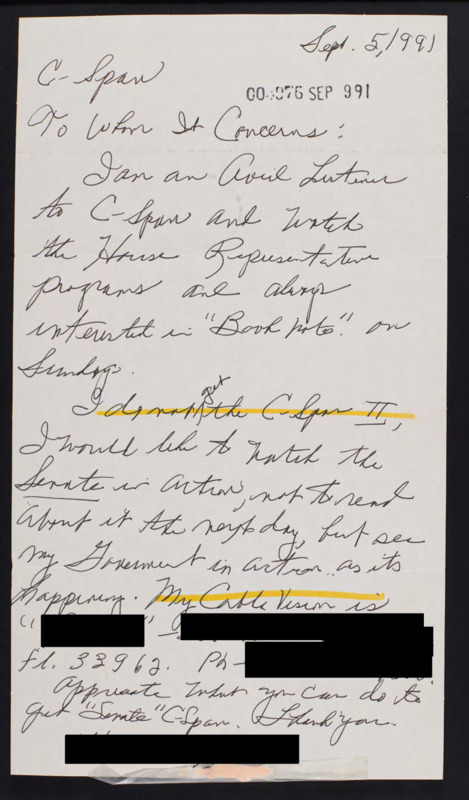 Sept. 5, 1991
C-Span
00 076 SEP 991
To Whom It Concerns:
I am an Avid Listener
to C-Span and Watch
the House Representative
programs and always
interested in "Book Note." on
Sundays.
I do not get the C-Span II,
I would like to watch the
Senate in action, not to read
about it the next day, but see
my Goverment in action.. as its
happening. My Cable Vision is
"
fl. 33962. Ph-
Appreciate what you can do to
get "Senate" C-Span. Thank you.